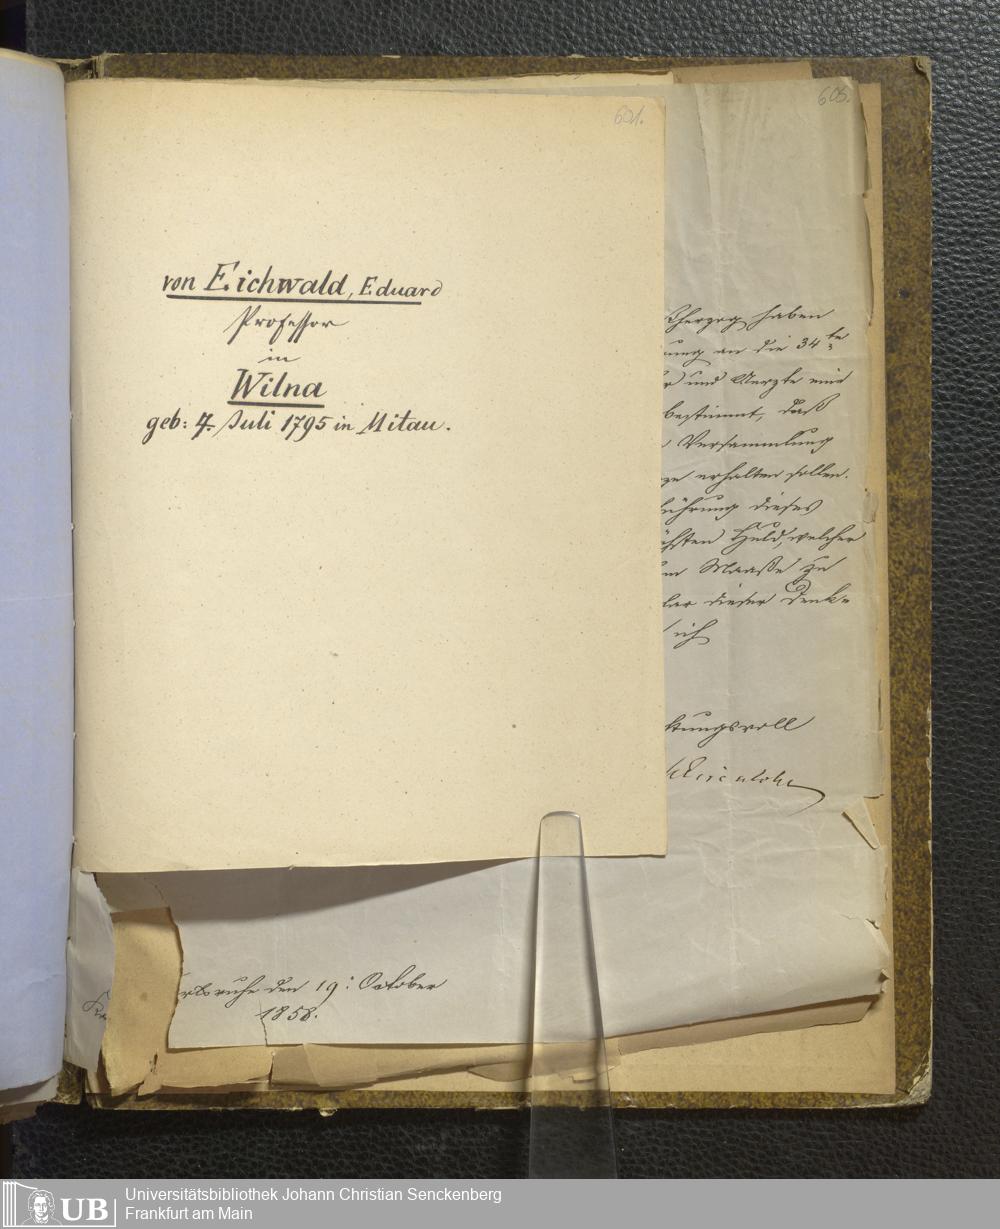 601.
von Eichwald, Eduard
Professor
in
Wilna
geb: 7. Juli 1795 in Mitau.
605.
herzog haben
an die 34te
und Aerzte eine
bestimmt, daß
Versammlung
erhalten sollen.
führung dieses
Huld, welcher
Maaße zu
dieser Denk=
ich
tungsvoll
rlsruhe den 19: October
1858.
Universitätsbibliothek Johann Christian Senckenberg
Frankfurt am Main
UB